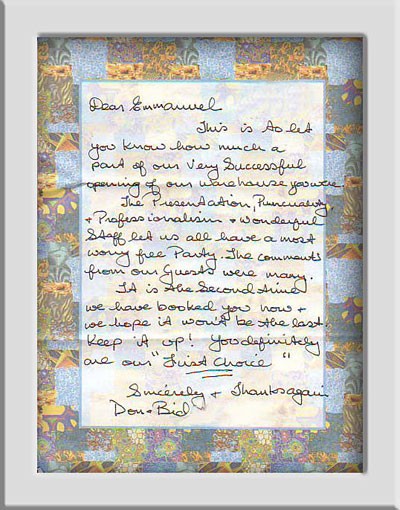 Dear Emmanuel
This is to let
you know how much a
part of our Very Successful
opening of our warehouse you were.
The Presentation, Punctuality,
+ Professionalism + Wonderful
Staff let us all have a most
worry free Party. The comments
from our Guests were many.
It is the Second time
we have booked you now +
we hope it won't be the last.
Keep it up! You definitely
are our "First Choice"
Sincerely + Thanks again
Don +